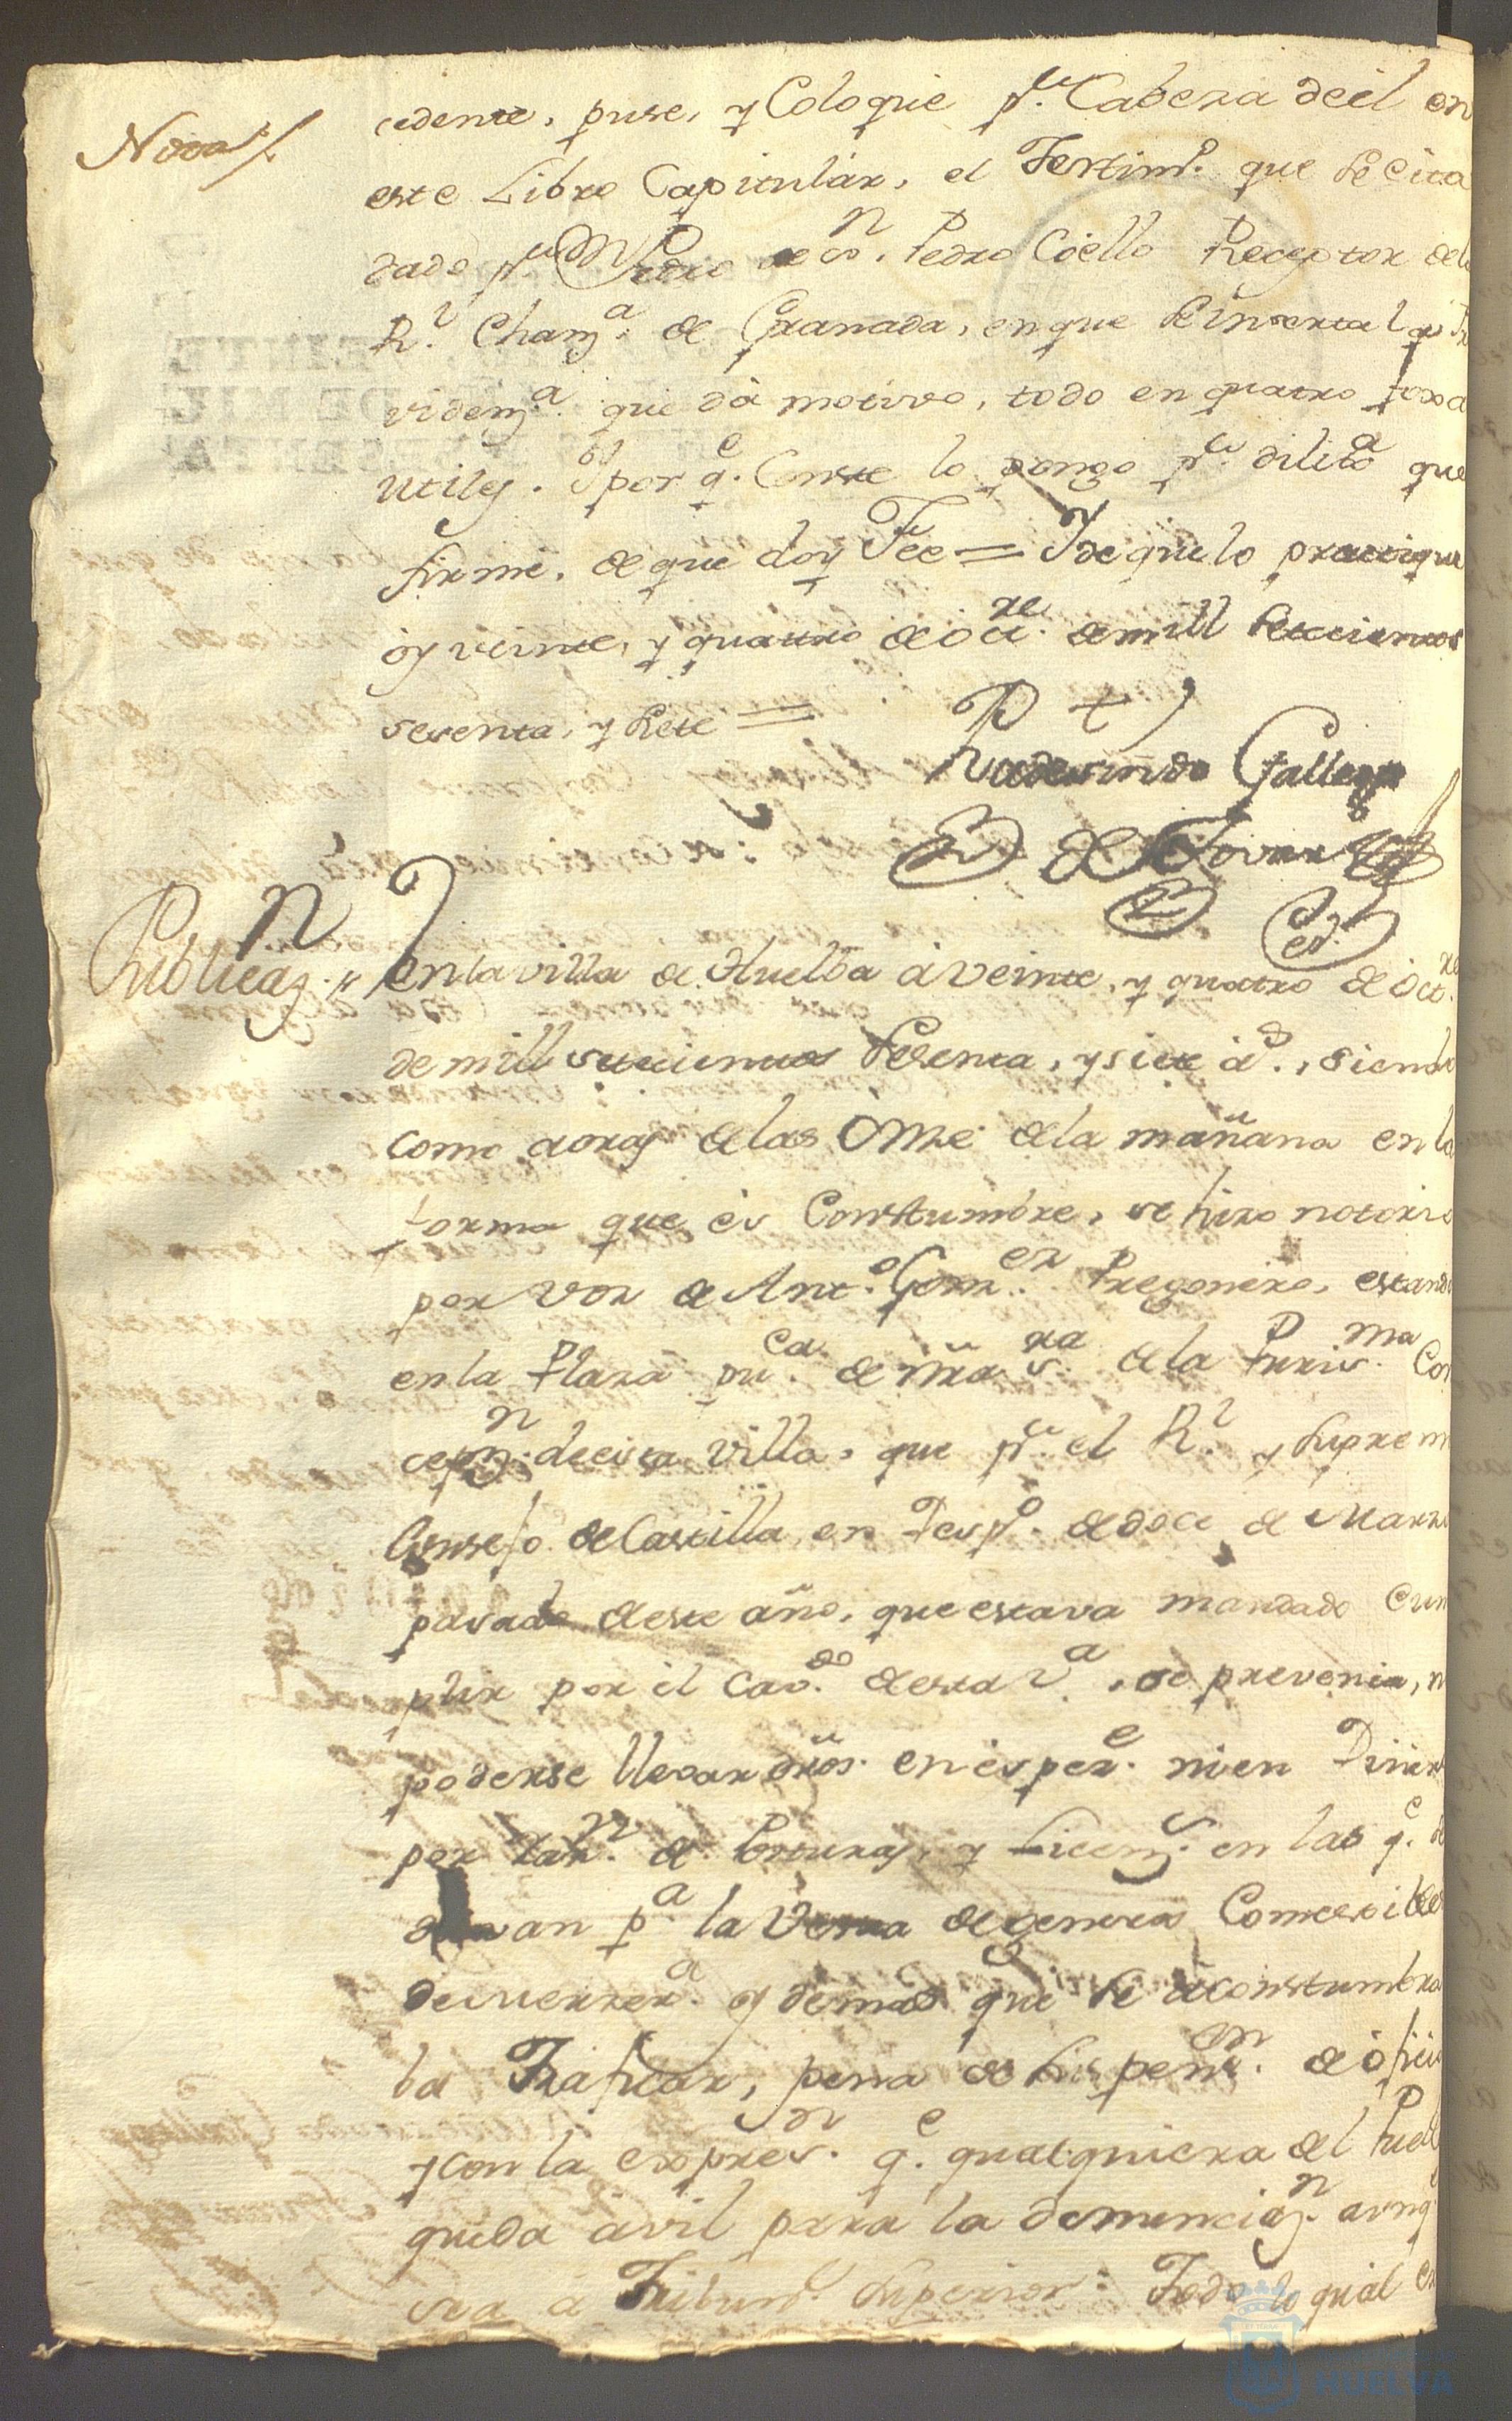 Nota//
cedente, puse, y Coloque pr. Cabeza deel en
este Libro Capitular, el Testimo. que se cita
dado pr. Dn Pedro Coello Receptor dela
Rl. Chanza. de Granada, en que se inserta la Pro
videnza. que dà motivo, todo en quatro foxas
utiles. Y por qe. Conste lo pongo pr. dilixa que
firmè, de que doy Fee = Y de que lo practique
oy veinte, y quattro de octre. de mill setecientos
sesenta, y siete =
Rudesindo Gallego
de Tovar
Publicazn.// En la villa de Huelba à veinte, y quatro de octre.
de mill settecientos sesenta, y siete as., siendo
como a oras de las Onze de la mañana en la
forma que ès Constumbre, se hizo notorio
por voz de Anto. Gomez. Pregonero, estando
en la Plaza puca. de nra sra. de la Purisma. Con
cepzn. de esta villa, que pr. el Rl. y Suprem
Consejo de Castilla, en Despo. de doce de Marzo
pasado de este año, que estava mandado Cum
plir por el Cavdo. de esta va., se prevenia, n
poderse llevar dros. en èspee. ni en Diner
por razn. de Posturas, y Licenzs. en las qe.
van pa. la Venta de generos Comestibles
de y demas que se aconstumbra
la Traficar, pena de suspensn. de òficio
y con la expresn. qe. qualquiera del Pueb
queda avil para la denunciazn. aunqe
sea a Tribunl. Superior: Todo lo qual en
HUELVA